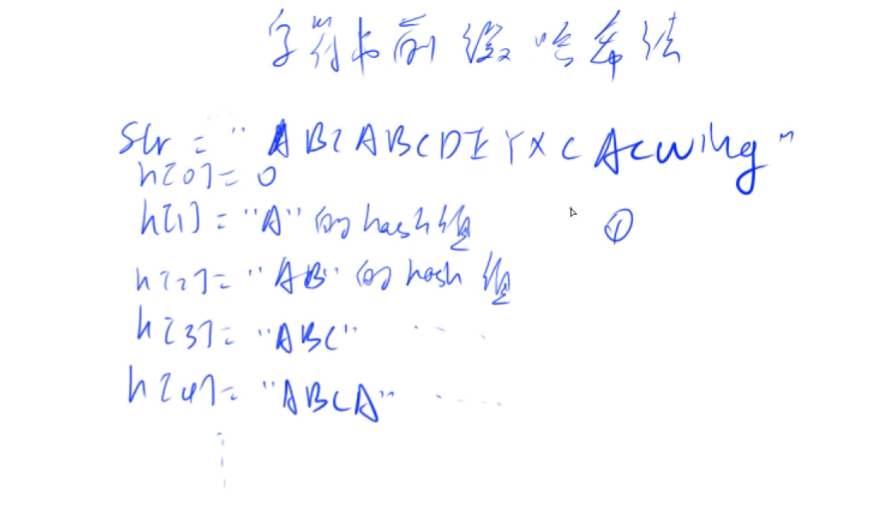 字符串前缀哈希法
Str = "ABCABCDEYXCAcwing"
h[0] = 0
h[1] = "A"的hash值 ①
h[2] = "AB"的hash值
h[3] = "ABC" ....
h[4] = "ABCA" .....